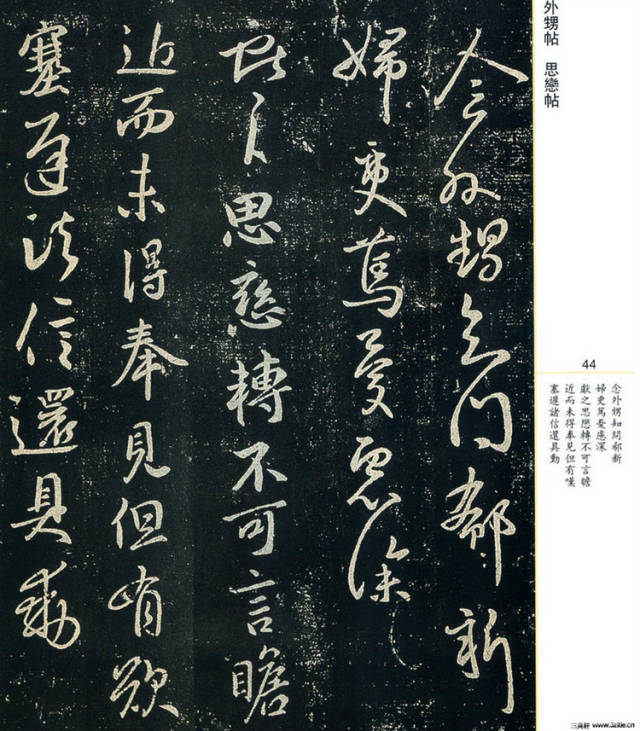 外甥帖 思戀帖
念外甥知問郗新
婦更篤憂慮深
獻之思戀轉不可言瞻
近而未得奉見但有歎
塞遲諸信還具動
44
念外甥知問郗新
婦更篤憂慮深
獻之思戀轉不可言瞻
近而未得奉見但有嘆
塞遲諸信還具動
www.3zitie.cn